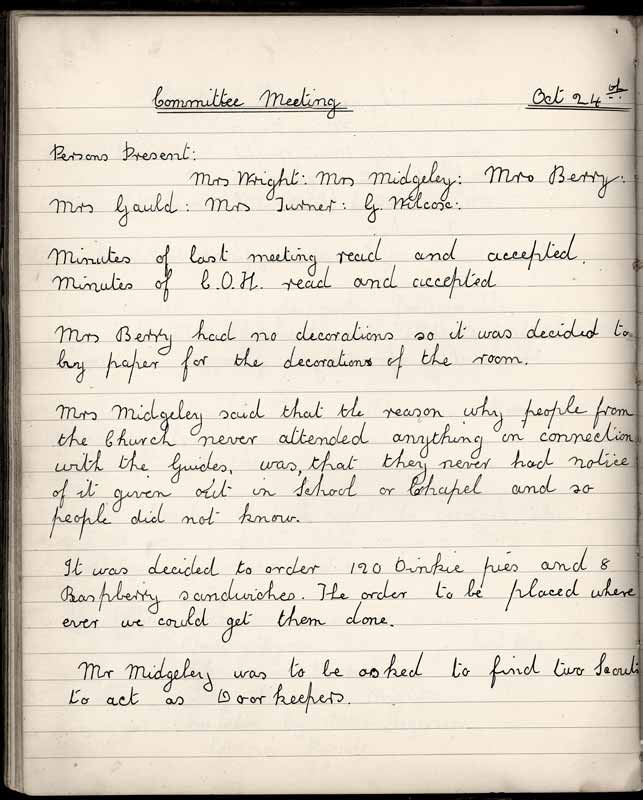 Committee Meeting Oct 24th
Persons Present:
Mrs Wright: Mrs Midgeley: Mrs Berry:
Mrs Gauld: Mrs Turner: G. Wilcox:.
Minutes of last meeting read and accepted.
Minutes of C.O.H. read and accepted
Mrs Berry had no decorations so it was decided to
buy paper for the decorations of the room.
Mrs Midgeley said that the reason why people from
the Church never attended anything in connection
with the Guides, was, that they never had notice
of it given out in School or Chapel and so
people did not know.
It was decided to order 120 Dinkie pies and 8
Raspberry sandwiches. The order to be placed where
ever we could get them done.
Mr Midgeley was to be asked to find two Scouts
to act as Doorkeepers.